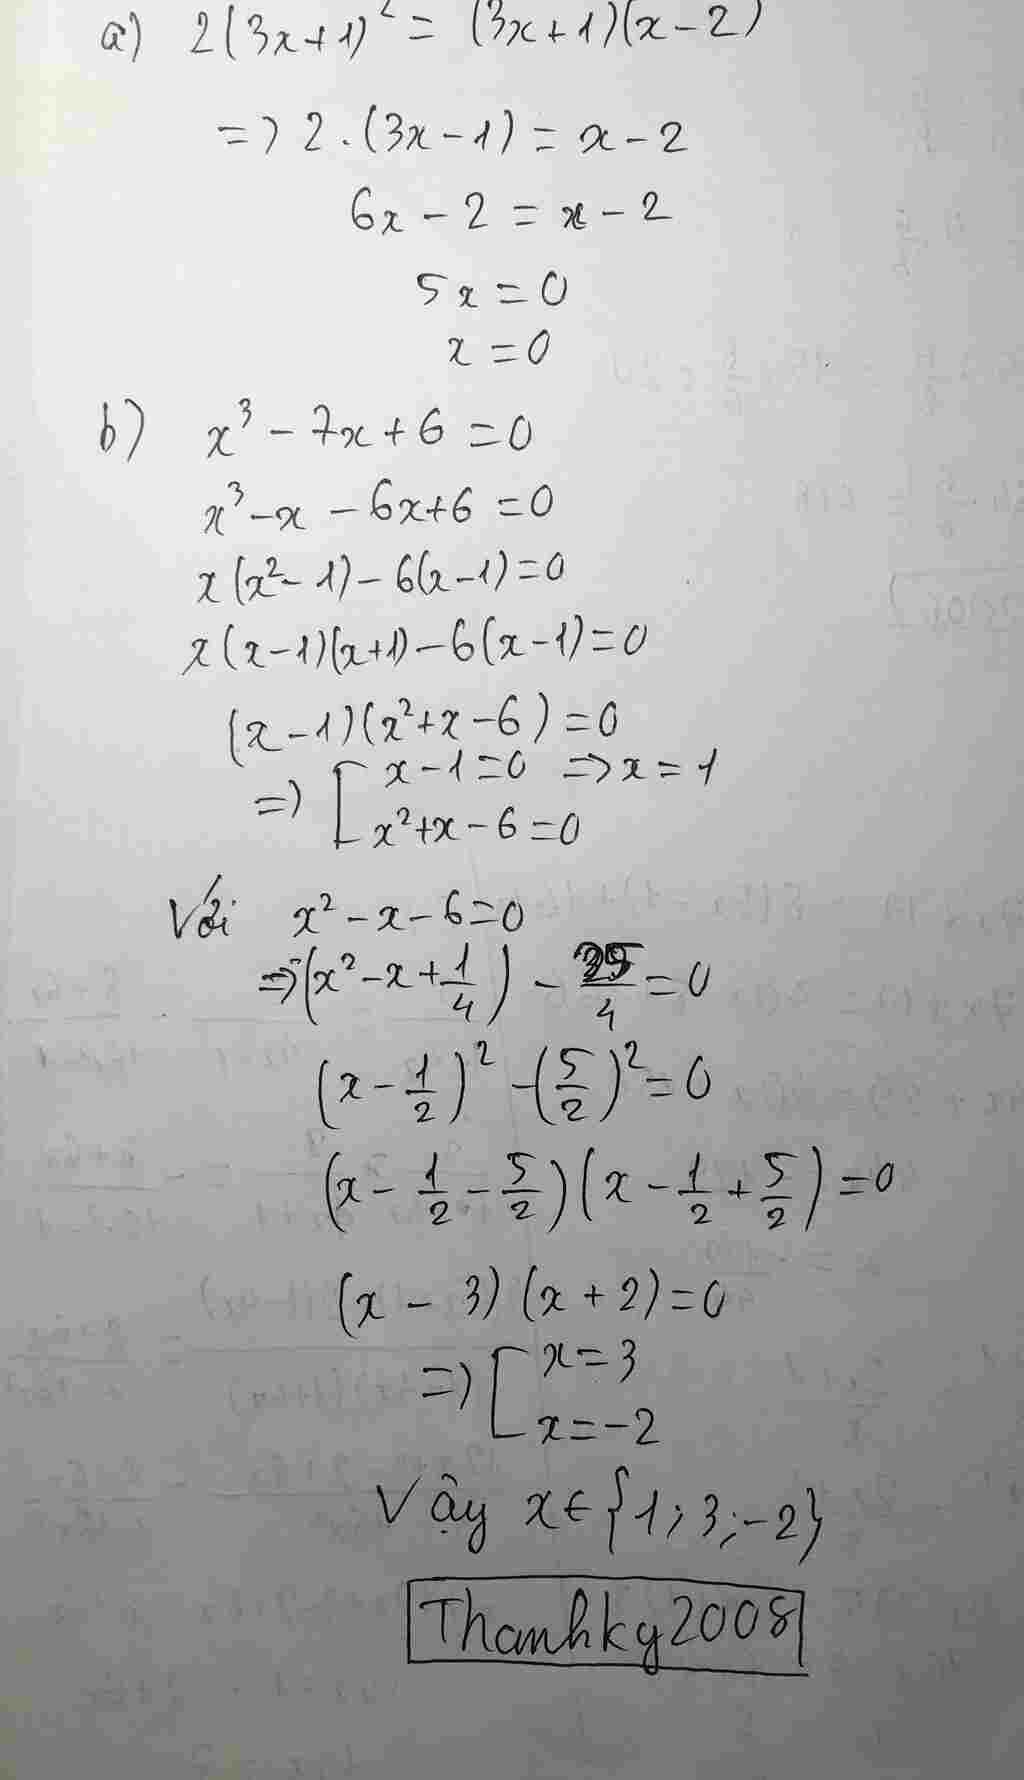 a) 2(3x+1)² = (3x+1)(x-2)
=> 2.(3x-1) = x-2
6x-2 = x-2
5x = 0
x = 0
b) x³-7x+6 = 0
x³-x-6x+6 = 0
x(x²-1)-6(x-1) = 0
x(x-1)(x+1)-6(x-1) = 0
(x-1)(x²+x-6) = 0
=> [ x-1=0 => x=1
x²+x-6=0
Với x²-x-6=0
=> (x²-x+1/4) - 25/4 = 0
(x-1/2)² - (5/2)² = 0
(x-1/2-5/2)(x-1/2+5/2) = 0
(x-3)(x+2) = 0
=> [ x=3
x=-2
Vậy x∈{1;3;-2}
Thanhky2008